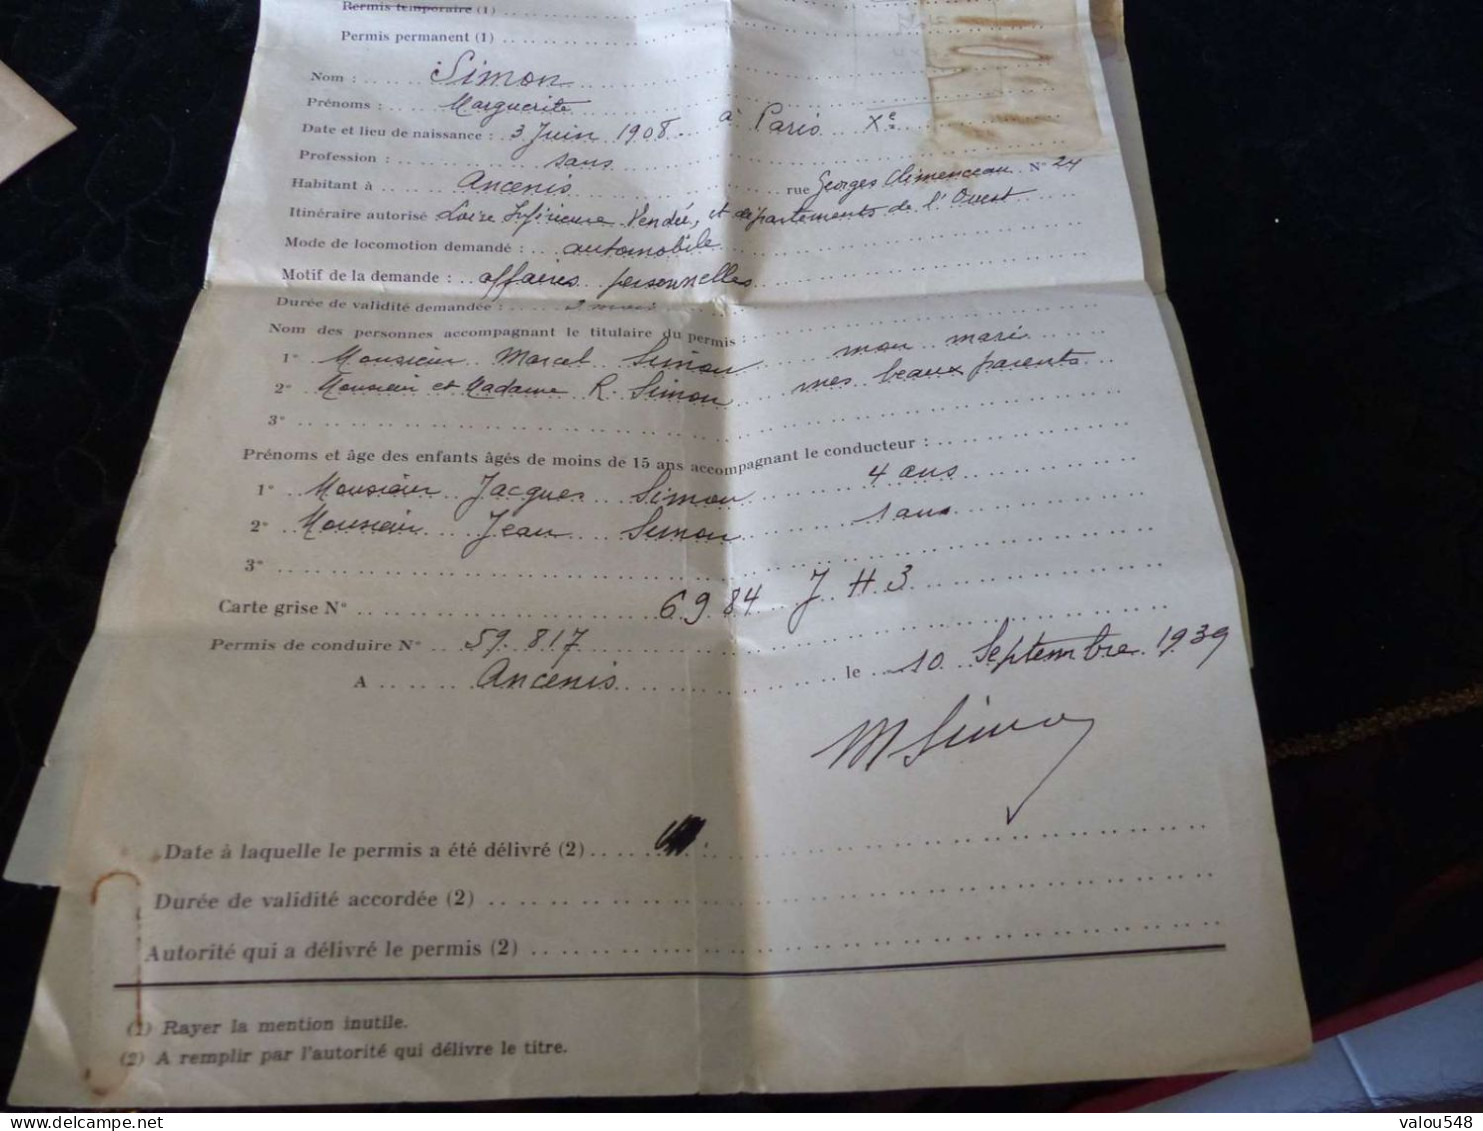 Permis temporaire (1)
Permis permanent (1)
Nom : Simon
Prénoms : Marguerite
Date et lieu de naissance : 3 Juin 1908 à Paris Xe
Profession : sans
Habitant à Ancenis rue Georges Clémenceau N° 24
Itinéraire autorisé Loire Inférieure Vendée, et départements de l'Ouest
Mode de locomotion demandé : automobile
Motif de la demande : affaires personnelles
Durée de validité demandée : mois
Nom des personnes accompagnant le titulaire du permis :
1° Monsieur Marcel Simon mon mari
2° Monsieur et Madame R. Simon mes beaux parents
3°
Prénoms et âge des enfants âgés de moins de 15 ans accompagnant le conducteur :
1° Monsieur Jacques Simon 4 ans
2° Monsieur Jean Simon 1 ans
3°
Carte grise N° 6984 J H 3
Permis de conduire N° 59.817
A Ancenis le 10 Septembre 1939
M Simon
Date à laquelle le permis a été délivré (2)
Durée de validité accordée (2)
Autorité qui a délivré le permis (2)
(1) Rayer la mention inutile.
(2) A remplir par l'autorité qui délivre le titre.
valou548